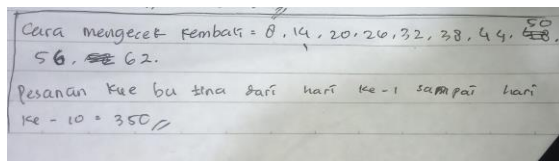 Cara mengecek kembali = 8, 14, 20, 26, 32, 38, 44, 50,
56, 62.
Pesanan kue bu tina dari hari ke-1 sampai hari
ke-10 = 350 //